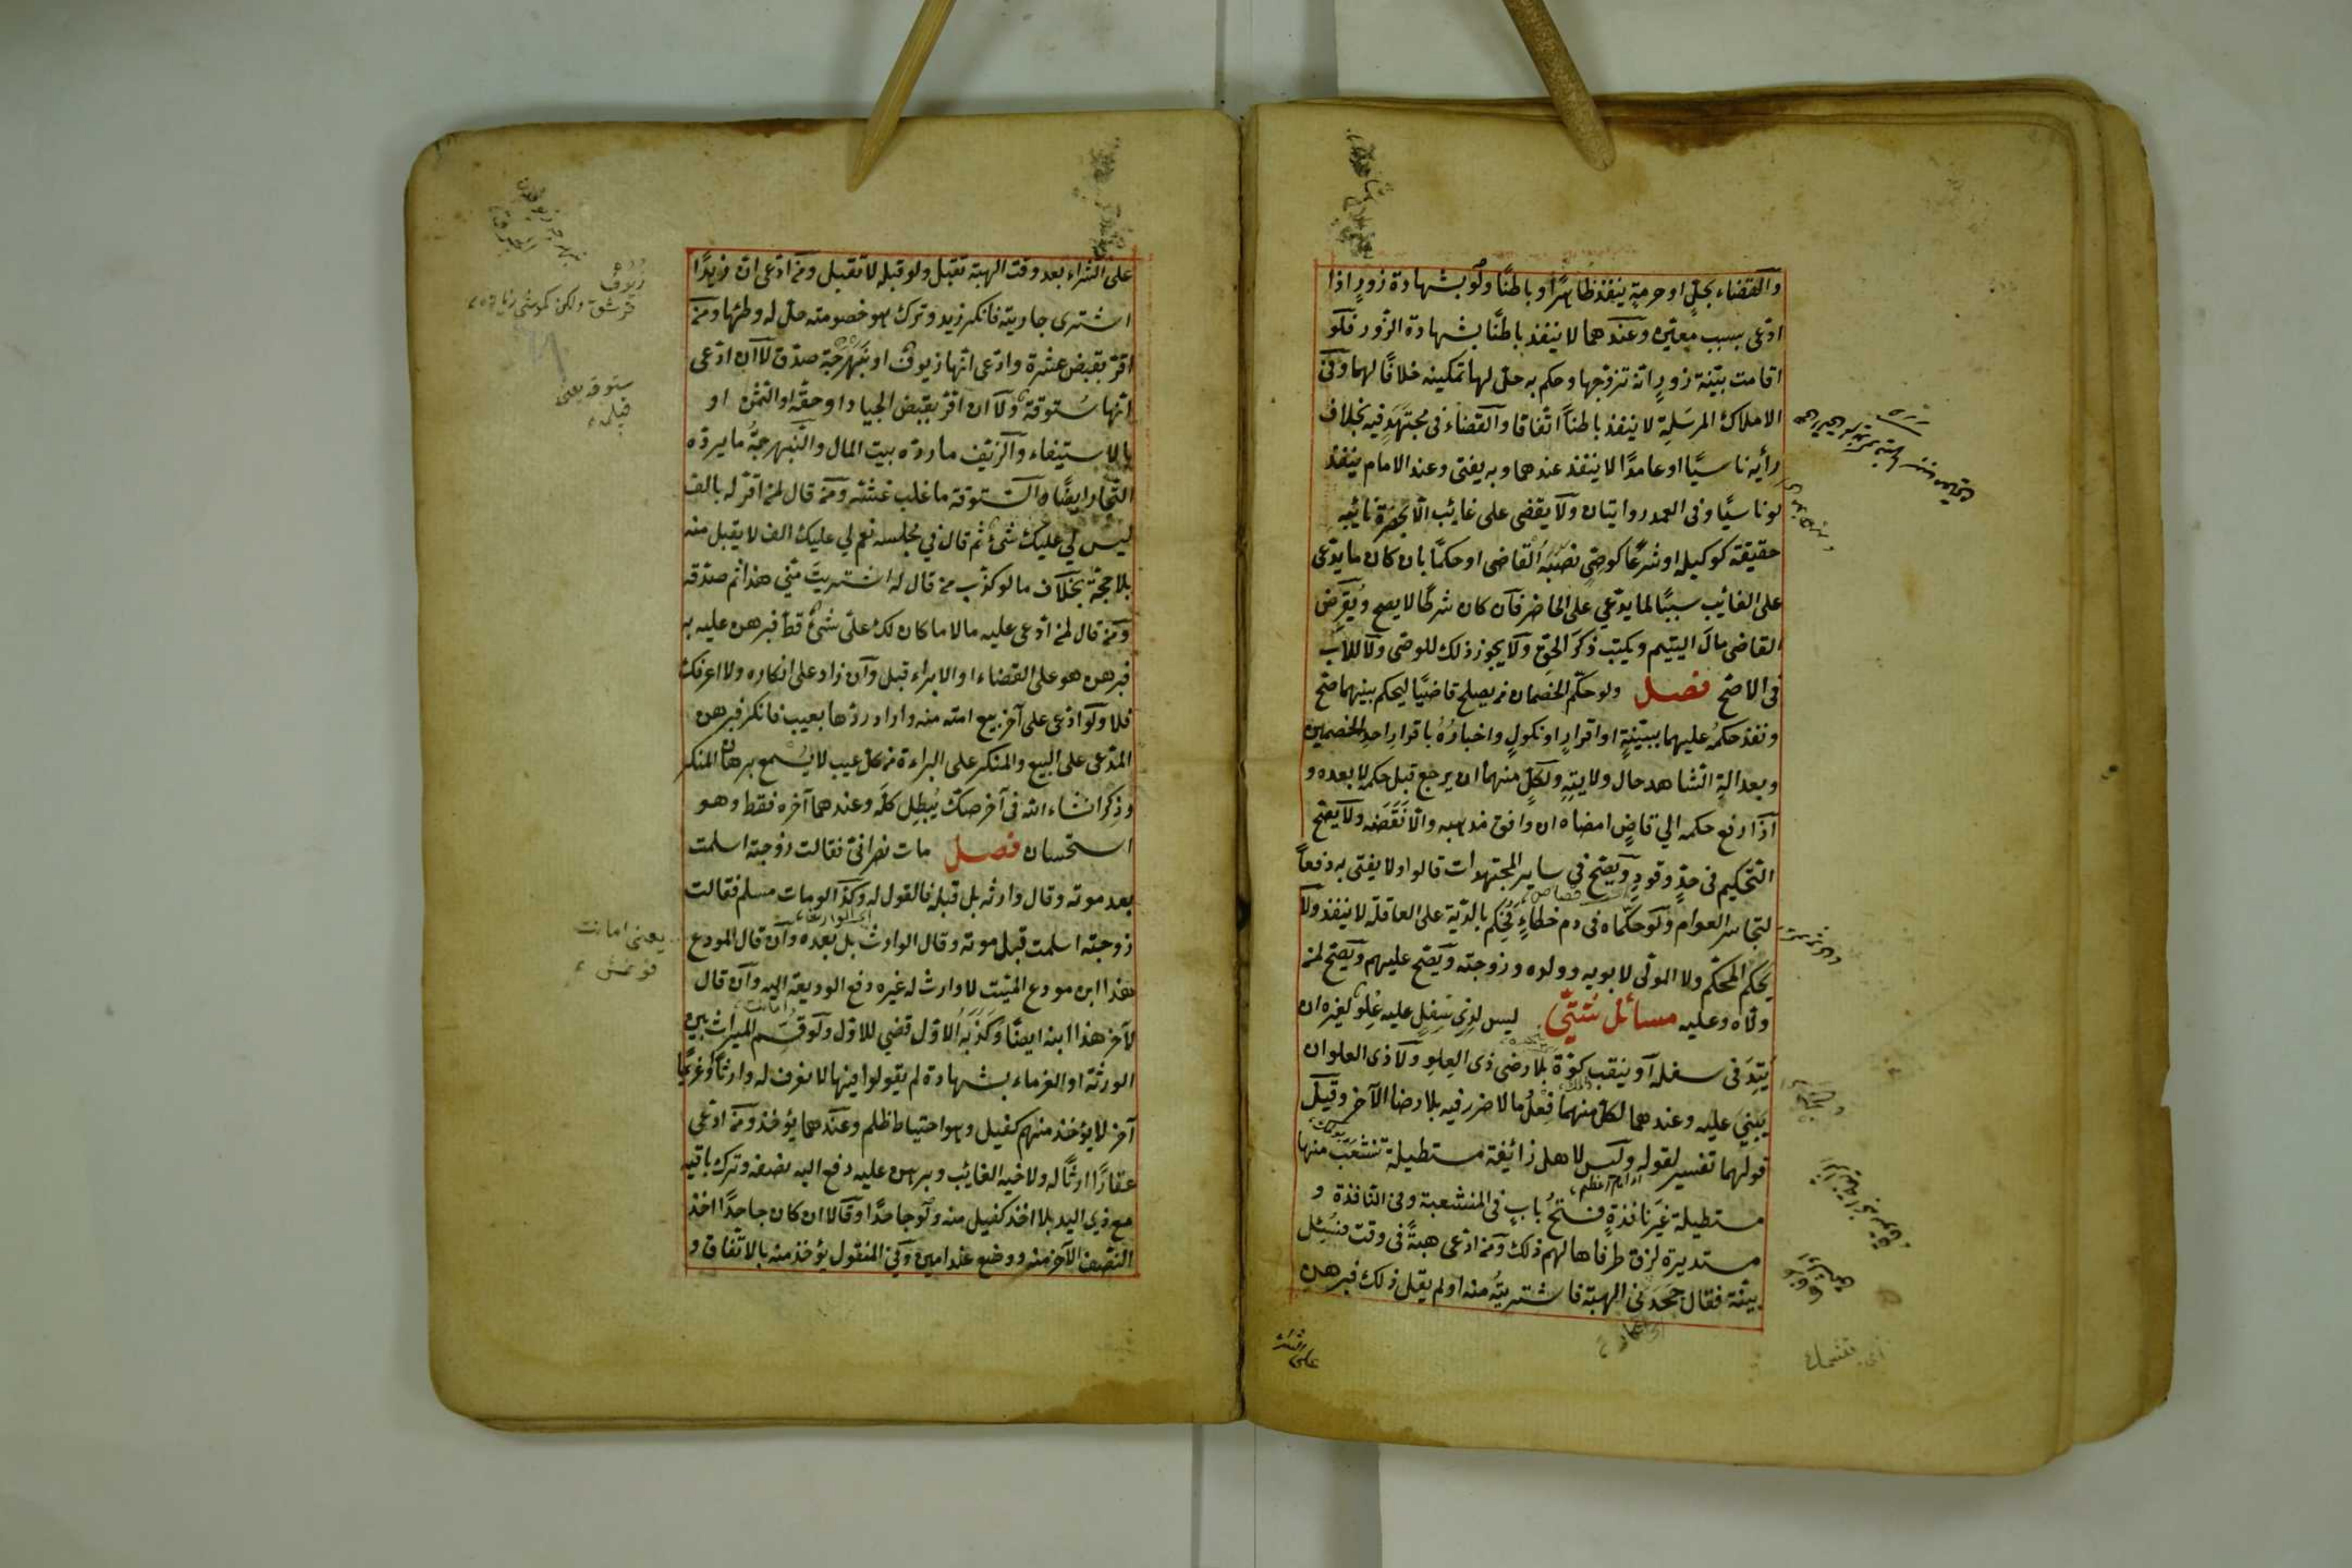 والقضاء بحل او حرمة ينفذ ظاهرًا وباطنًا ولو بشهادة زورٍ اذا
ادّعى بسبب معيّن وعندهما لا ينفذ باطنًا بشهادة الزّور فلو
اقامت بيّنة زورٍ انّه تزوّجها وحكم به حل لها تمكينه خلافًا لهما وفى
الاملاك المرسَلة لا ينفذ باطنًا اتّفاقا والقضاء فى مجتهَدٍ فيه بخلاف
رأيه ناسيًا او عامدًا لا ينفذ عندهما وبه يفتى وعند الامام ينفذ
لو ناسيًا وفى العمد روايتان ولا يقضى على غائب الّا بحضرة نائبه
حقيقة كوكيله او شرعًا كوصىٍّ نصَبَهُ القاضى او حكمًا بان كان ما يدّعى
على الغائب سببًا لما يدّعي على الحاضر فان كان شرطًا لا يصح ويُقرِض
القاضى مالَ اليتيم ويكتب ذكرَ الحقِّ ولا يجوز ذلك للوصّى ولا للاب
فى الاصّح فصل ولو حكّم الخصمان من يصلح قاضيًا ليحكم بينهما صحّ
ونفذ حكمُه عليهما ببيّنةٍ او اقرارٍ او نكولٍ واخبارُهُ باقرارِ احدِ الخصمين
وبعدالةِ الشاهد حال ولايتِهِ ولكلٍّ منهما ان يرجع قبل حكمه لا بعده و
اذا رفع حكمه الي قاضٍ امضاه ان وافق مذهبه والّا نَقَضَه ولا يصّح
التحكيم فى حدٍّ وقودٍ ويصّح في ساير المجتهدات قالوا ولا يفتى به دفعاً
لتجاسر العوام ولو حكّماه فى دم خطاءٍ فحكم بالدّية على العاقلة لا ينفذ ولا
يَحكم المحكّم ولا المولّى لابويه وولده وزوجته ويصّح عليهم ويصّح لمن
ولّاه وعليه مسائل شتّى ليس لذى سِفلٍ عليه عُلوٌ لغيره ان
يَتِدَ فى سفله او ينقب كوّة بلا رضى ذى العِلو ولا ذى العلو ان
يبنىَ عليه وعندهما لكل منهما فِعلُ ما لا ضرر فيه بلا رضا الآخر وقيل
قولهما تفسير لقوله وليس لاهل زائغة مستطيلة تنشعب منها
مستطيلة غير نافذةٍ فتحُ بابٍ فى المنشعبة وفى النّافذة و
مستديرة لزق طرفاها لهم ذلك ومن ادّعى هبةً فى وقت فسُئِل
بيّنة فقال جحدنى الهبة فاشتريتُه منه او لم يقل ذلك فبرهن
على الشراء بعد وقت الهبة تقبل ولو قبله لا تقبل ومن ادّعى ان زيدًا
اشترى جاريته فانكر زيد وترك هو خصومته حل له وطئها ومن
اقرّ بقبض عشرة وادّعى انّها زيوف او نَبَهْرَجَة صدّق لا ان ادّعى
انّها سُتوقة ولا ان اقرّ بقبض الجياد او حقّه او الثمن او
بالاستيفاء والزّيف ما ردّه بيت المال والنّبهرجةُ ما يردّه
التجّار ايضًا والسّتوقة ما غلب غشّه ومن قال لمن اقرّ له بالف
ليس لي عليك شئ ثم قال في مجلسه نعم لي عليك الف لا يقبل منه
بلا حجّة بخلاف ما لو كذّب من قال له اشتريتَ منّي هذا ثم صدّقه
ومن قال لمن ادّعى عليه مالا ما كان لك علىّ شئ قطّ فبرهن عليه به
فبرهن هو على القضاء او الابراء قبل وان زاد على انكاره ولا اعرفك
فلا ولو ادّعى على آخر بيع امته منه واراد ردّها بعيب فانكر فبرهن
المدّعى على البيع والمنكر على البراءة من كل عيب لا يُسمع برهان المنكر
وذِكر انشاء الله فى آخر صكّ يُبطِل كلّه وعندهما آخره فقط وهو
استحسان فصل مات نصرانىّ فقالت زوجته اسلمت
بعد موته وقال وارثه بل قبله فالقول له وكذا لو مات مسلم فقالت
زوجته اسلمت قبل موته وقال الوارث بل بعده وان قال المودع
هذا ابن مودعى الميّت لا وارث له غيره دفع الوديعة اليه وان قال
لآخر هذا ابنه ايضًا وكذّبَه الاوّل قضي للاوّل ولو قُسّم الميراث بين
الورثة او الغرماء بشهادة لم يقولوا فيها لا نعرف له وارثًا او غريمًا
آخر لا يؤخذ منهم كفيل وهو احتياط ظلم وعندهما يؤخذ ومن ادّعى
عقارًا ارثًا له ولاخيه الغائب وبرهن عليه دفع اليه نصفه وترك باقيه
مع ذي اليد بلا اخذ كفيل منه ولو جاحدًا وقالا ان كان جاحدًا اخذ
النّصف الآخر منه ووضع عند امين وفى المنقول يؤخذ منه بالاتّفاق و
زيوف
ستوقه يعنى
يعنى امانت
على الشراء